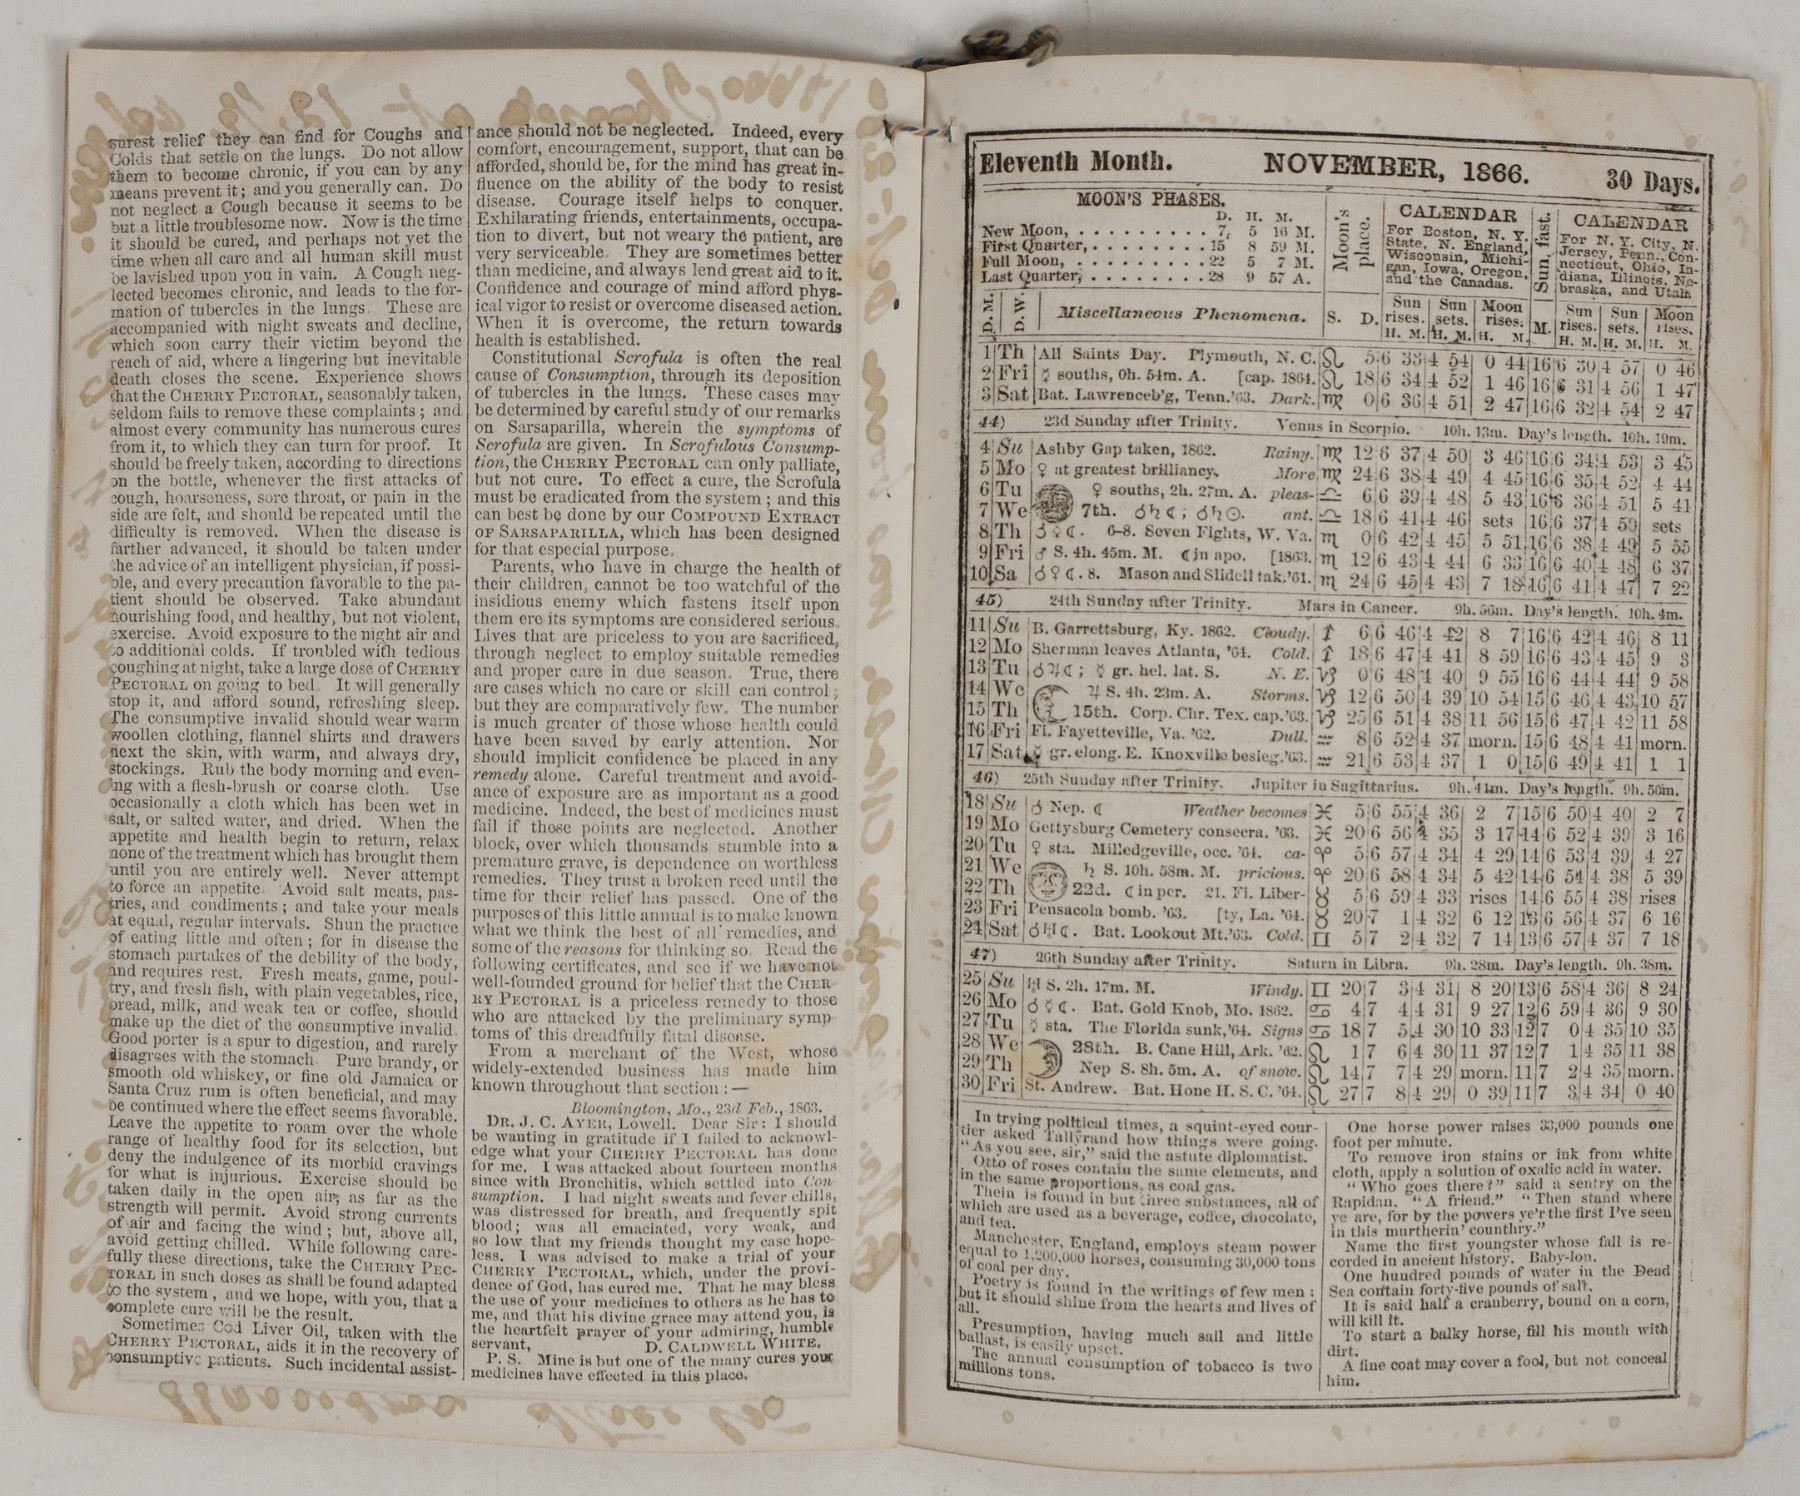 surest relief they can find for Coughs and
Colds that settle on the lungs. Do not allow
them to become chronic, if you can by any
means prevent it; and you generally can. Do
not neglect a Cough because it seems to be
but a little troublesome now. Now is the time
it should be cured, and perhaps not yet the
time when all care and all human skill must
be lavished upon you in vain. A Cough neg-
lected becomes chronic, and leads to the for-
mation of tubercles in the lungs. These are
accompanied with night sweats and decline,
which soon carry their victim beyond the
reach of aid, where a lingering but inevitable
death closes the scene. Experience shows
that the CHERRY PECTORAL, seasonably taken,
seldom fails to remove these complaints; and
almost every community has numerous cures
from it, to which they can turn for proof. It
should be freely taken, according to directions
on the bottle, whenever the first attacks of
cough, hoarseness, sore throat, or pain in the
side are felt, and should be repeated until the
difficulty is removed. When the disease is
farther advanced, it should be taken under
the advice of an intelligent physician, if possi-
ble, and every precaution favorable to the pa-
tient should be observed. Take abundant
nourishing food, and healthy, but not violent,
exercise. Avoid exposure to the night air and
to additional colds. If troubled with tedious
coughing at night, take a large dose of CHERRY
PECTORAL on going to bed. It will generally
stop it, and afford sound, refreshing sleep.
The consumptive invalid should wear warm
woollen clothing, flannel shirts and drawers
next the skin, with warm, and always dry,
stockings. Rub the body morning and even-
ing with a flesh-brush or coarse cloth. Use
occasionally a cloth which has been wet in
salt, or salted water, and dried. When the
appetite and health begin to return, relax
none of the treatment which has brought them
until you are entirely well. Never attempt
to force an appetite. Avoid salt meats, pas-
tries, and condiments; and take your meals
at equal, regular intervals. Shun the practice
of eating little and often; for in disease the
stomach partakes of the debility of the body,
and requires rest. Fresh meats, game, poul-
try, and fresh fish, with plain vegetables, rice,
bread, milk, and weak tea or coffee, should
make up the diet of the consumptive invalid.
Good porter is a spur to digestion, and rarely
disagrees with the stomach. Pure brandy, or
smooth old whiskey, or fine old Jamaica or
Santa Cruz rum is often beneficial, and may
be continued where the effect seems favorable.
Leave the appetite to roam over the whole
range of healthy food for its selection, but
deny the indulgence of its morbid cravings
for what is injurious. Exercise should be
taken daily in the open air, as far as the
strength will permit. Avoid strong currents
of air and facing the wind; but, above all,
avoid getting chilled. While following care-
fully these directions, take the CHERRY PEC-
TORAL in such doses as shall be found adapted
to the system, and we hope, with you, that a
complete cure will be the result.
Sometimes Cod Liver Oil, taken with the
CHERRY PECTORAL, aids it in the recovery of
consumptive patients. Such incidental assist-
ance should not be neglected. Indeed, every
comfort, encouragement, support, that can be
afforded, should be, for the mind has great in-
fluence on the ability of the body to resist
disease. Courage itself helps to conquer.
Exhilarating friends, entertainments, occupa-
tion to divert, but not weary the patient, are
very serviceable. They are sometimes better
than medicine, and always lend great aid to it.
Confidence and courage of mind afford phys-
ical vigor to resist or overcome diseased action.
When it is overcome, the return towards
health is established.
Constitutional Scrofula is often the real
cause of Consumption, through its deposition
of tubercles in the lungs. These cases may
be determined by careful study of our remarks
on Sarsaparilla, wherein the symptoms of
Scrofula are given. In Scrofulous Consump-
tion, the CHERRY PECTORAL can only palliate,
but not cure. To effect a cure, the Scrofula
must be eradicated from the system; and this
can best be done by our COMPOUND EXTRACT
OF SARSAPARILLA, which has been designed
for that especial purpose.
Parents, who have in charge the health of
their children, cannot be too watchful of the
insidious enemy which fastens itself upon
them ere its symptoms are considered serious.
Lives that are priceless to you are sacrificed,
through neglect to employ suitable remedies
and proper care in due season. True, there
are cases which no care or skill can control;
but they are comparatively few. The number
is much greater of those whose health could
have been saved by early attention. Nor
should implicit confidence be placed in any
remedy alone. Careful treatment and avoid-
ance of exposure are as important as a good
medicine. Indeed, the best of medicines must
fail if those points are neglected. Another
block, over which thousands stumble into a
premature grave, is dependence on worthless
remedies. They trust a broken reed until the
time for their relief has passed. One of the
purposes of this little annual is to make known
what we think the best of all remedies, and
some of the reasons for thinking so. Read the
following certificates, and see if we have not
well-founded ground for belief that the CHER-
RY PECTORAL is a priceless remedy to those
who are attacked by the preliminary symp-
toms of this dreadfully fatal disease.
From a merchant of the West, whose
widely-extended business has made him
known throughout that section:—
Bloomington, Mo., 23d Feb., 1863.
DR. J. C. AYER, Lowell. Dear Sir: I should
be wanting in gratitude if I failed to acknowl-
edge what your CHERRY PECTORAL has done
for me. I was attacked about fourteen months
since with Bronchitis, which settled into Con-
sumption. I had night sweats and fever chills,
was distressed for breath, and frequently spit
blood; was all emaciated, very weak, and
so low that my friends thought my case hope-
less. I was advised to make a trial of your
CHERRY PECTORAL, which, under the provi-
dence of God, has cured me. That he may bless
the use of your medicines to others as he has to
me, and that his divine grace may attend you, is
the heartfelt prayer of your admiring, humble
servant, D. CALDWELL WHITE.
P. S. Mine is but one of the many cures your
medicines have effected in this place.
Eleventh Month. NOVEMBER, 1866. 30 Days.
MOON'S PHASES.
D. H. M.
New Moon, . . . . . . . . . 7, 5 16 M.
First Quarter, . . . . . . . . 15 8 59 M.
Full Moon, . . . . . . . . . 22 5 7 M.
Last Quarter, . . . . . . . . 28 9 57 A.
Moon's place.
CALENDAR
For Boston, N. Y.
State, N. England,
Wisconsin, Michi-
gan, Iowa, Oregon,
and the Canadas.
Sun fast.
CALENDAR
For N. Y. City, N.
Jersey, Penn., Con-
necticut, Ohio, In-
diana, Illinois, Ne-
braska, and Utah
D. M. D. W. Miscellaneous Phenomena. S. D. Sun rises. Sun sets. Moon rises. M. Sun rises. Sun sets. Moon rises.
H. M. H. M. H. M. H. M. H. M. H. M.
1 Th All Saints Day. Plymouth, N. C. ♌ 5 6 33 4 54 0 44 16 6 30 4 57 0 46
2 Fri ☿ souths, 0h. 54m. A. [cap. 1864. ♌ 18 6 34 4 52 1 46 16 6 31 4 56 1 47
3 Sat Bat. Lawrenceb'g, Tenn.'63. Dark. ♍ 0 6 36 4 51 2 47 16 6 32 4 54 2 47
44) 23d Sunday after Trinity. Venus in Scorpio. 10h. 13m. Day's length. 10h. 19m.
4 Su Ashby Gap taken, 1862. Rainy. ♍ 12 6 37 4 50 3 46 16 6 34 4 53 3 45
5 Mo ♀ at greatest brilliancy. More ♍ 24 6 38 4 49 4 45 16 6 35 4 52 4 44
6 Tu ♀ souths, 2h. 27m. A. pleas- ♎ 6 6 39 4 48 5 43 16 6 36 4 51 5 41
7 We 7th. ☌♄☾; ☌♄☉. ant. ♎ 18 6 41 4 46 sets 16 6 37 4 50 sets
8 Th ☌☿☾. 6-8. Seven Fights, W. Va. ♏ 0 6 42 4 45 5 51 16 6 38 4 49 5 55
9 Fri ♂ S. 4h. 45m. M. ☾ in apo. [1863. ♏ 12 6 43 4 44 6 33 16 6 40 4 48 6 37
10 Sa ☌♀☾. 8. Mason and Slidell tak.'61. ♏ 24 6 45 4 43 7 18 16 6 41 4 47 7 22
45) 24th Sunday after Trinity. Mars in Cancer. 9h. 56m. Day's length. 10h. 4m.
11 Su B. Garrettsburg, Ky. 1862. Cloudy. ♐ 6 6 46 4 42 8 7 16 6 42 4 46 8 11
12 Mo Sherman leaves Atlanta, '64. Cold. ♐ 18 6 47 4 41 8 59 16 6 43 4 45 9 3
13 Tu ☌♃☾; ☿ gr. hel. lat. S. N. E. ♑ 0 6 48 4 40 9 55 16 6 44 4 44 9 58
14 We ♃ S. 4h. 23m. A. Storms. ♑ 12 6 50 4 39 10 54 15 6 46 4 43 10 57
15 Th 15th. Corp. Chr. Tex. cap.'63. ♑ 25 6 51 4 38 11 56 15 6 47 4 42 11 58
16 Fri Fi. Fayetteville, Va. '62. Dull. ♒ 8 6 52 4 37 morn. 15 6 48 4 41 morn.
17 Sat ☿ gr. elong. E. Knoxville besieg.'63. ♒ 21 6 53 4 37 1 0 15 6 49 4 41 1 1
46) 25th Sunday after Trinity. Jupiter in Sagittarius. 9h. 41m. Day's length. 9h. 50m.
18 Su ☌ Nep. ☾ Weather becomes ♓ 5 6 55 4 36 2 7 15 6 50 4 40 2 7
19 Mo Gettysburg Cemetery consecra. '63. ♓ 20 6 56 4 35 3 17 14 6 52 4 39 3 16
20 Tu ♀ sta. Milledgeville, occ. '64. ca- ♈ 5 6 57 4 34 4 29 14 6 53 4 39 4 27
21 We ♄ S. 10h. 58m. M. pricious. ♈ 20 6 58 4 34 5 42 14 6 54 4 38 5 39
22 Th 22d. ☾ in per. 21. Fi. Liber- ♉ 5 6 59 4 33 rises 14 6 55 4 38 rises
23 Fri Pensacola bomb. '63. [ty, La. '64. ♉ 20 7 1 4 32 6 12 13 6 56 4 37 6 16
24 Sat ☌♅☾. Bat. Lookout Mt.'63. Cold. ♊ 5 7 2 4 32 7 14 13 6 57 4 37 7 18
47) 26th Sunday after Trinity. Saturn in Libra. 9h. 28m. Day's length. 9h. 38m.
25 Su ♅ S. 2h. 17m. M. Windy. ♊ 20 7 3 4 31 8 20 13 6 58 4 36 8 24
26 Mo ☌☿☾. Bat. Gold Knob, Mo. 1862. ♋ 4 7 4 4 31 9 27 12 6 59 4 36 9 30
27 Tu ☿ sta. The Florida sunk,'64. Signs ♋ 18 7 5 4 30 10 33 12 7 0 4 35 10 35
28 We 28th. B. Cane Hill, Ark. '62. ♌ 1 7 6 4 30 11 37 12 7 1 4 35 11 38
29 Th Nep S. 8h. 5m. A. of snow. ♌ 14 7 7 4 29 morn. 11 7 2 4 35 morn.
30 Fri St. Andrew. Bat. Hone H. S. C. '64. ♌ 27 7 8 4 29 0 39 11 7 3 4 34 0 40
In trying political times, a squint-eyed cour-
tier asked Tallyrand how things were going.
“As you see, sir,” said the astute diplomatist.
Otto of roses contain the same elements, and
in the same proportions, as coal gas.
Thein is found in but three substances, all of
which are used as a beverage, coffee, chocolate,
and tea.
Manchester, England, employs steam power
equal to 1,200,000 horses, consuming 30,000 tons
of coal per day.
Poetry is found in the writings of few men;
but it should shine from the hearts and lives of
all.
Presumption, having much sail and little
ballast, is easily upset.
The annual consumption of tobacco is two
millions tons.
One horse power raises 33,000 pounds one
foot per minute.
To remove iron stains or ink from white
cloth, apply a solution of oxalic acid in water.
“Who goes there?” said a sentry on the
Rapidan. “A friend.” “Then stand where
ye are, for by the powers ye'r the first I've seen
in this murtherin' counthry.”
Name the first youngster whose fall is re-
corded in ancient history. Baby-lon.
One hundred pounds of water in the Dead
Sea contain forty-five pounds of salt.
It is said half a cranberry, bound on a corn,
will kill it.
To start a balky horse, fill his mouth with
dirt.
A fine coat may cover a fool, but not conceal
him.